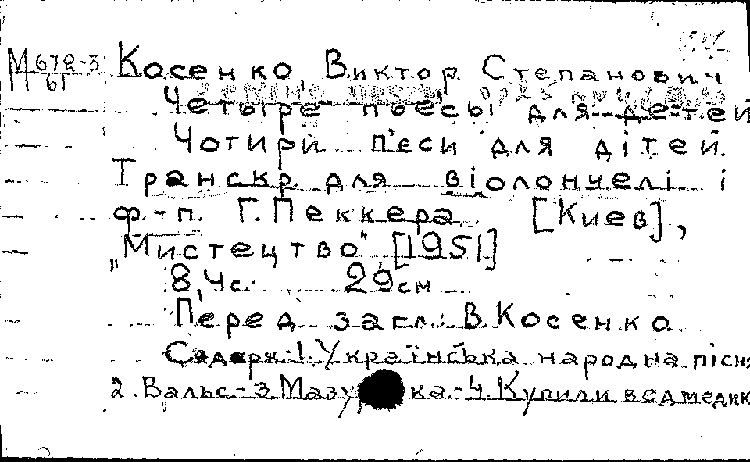 М 672-3
61
Косенко, Виктор Степанович
Четыре пьесы для детей
Чотири п'єси для дітей.
Транскр. для віолончелі і
ф.-п. Г. Пеккера [Киев],
„Мистецтво" [1951]
8,4 с. 29 см
Перед загл.: В. Косенко
Содерж.: 1. Українська народна пісня
2. Вальс.- 3 Мазурка.- 4. Купили ведмедик